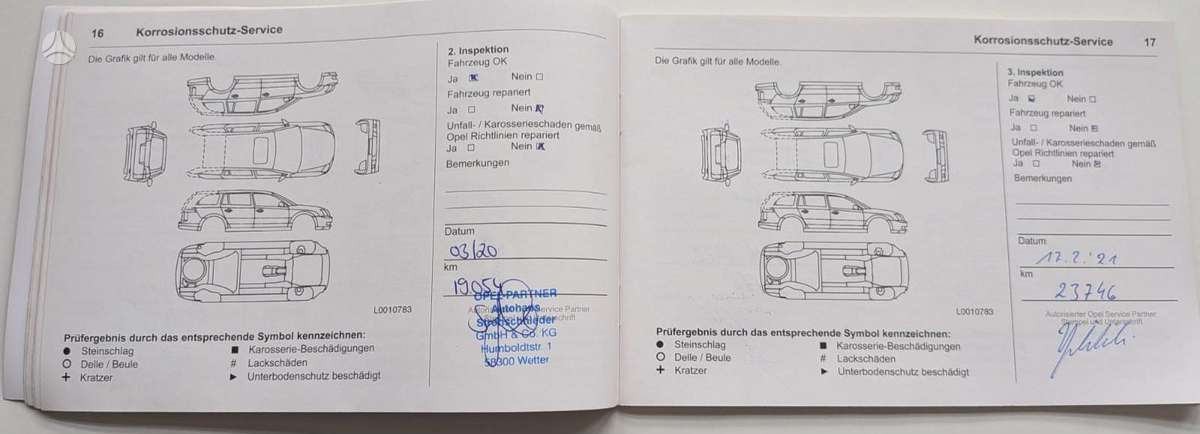 16 Korrosionsschutz-Service
Die Grafik gilt für alle Modelle.
2. Inspektion
Fahrzeug OK
Ja Nein
Fahrzeug repariert
Ja Nein
Unfall- / Karosserieschaden gemäß
Opel Richtlinien repariert
Ja Nein
Bemerkungen
Datum
03/20
km
19054
OPEL-PARTNER
Autohaus
GmbH & Co. KG
Humboldtstr. 1
58300 Wetter
L0010783
Prüfergebnis durch das entsprechende Symbol kennzeichnen:
● Steinschlag ■ Karosserie-Beschädigungen
○ Delle / Beule # Lackschäden
+ Kratzer ► Unterbodenschutz beschädigt
Korrosionsschutz-Service 17
Die Grafik gilt für alle Modelle.
3. Inspektion
Fahrzeug OK
Ja Nein
Fahrzeug repariert
Ja Nein
Unfall- / Karosserieschaden gemäß
Opel Richtlinien repariert
Ja Nein
Bemerkungen
Datum
17.2.'21
km
23746
Autorisierter Opel Service Partner
Stempel und Unterschrift
L0010783
Prüfergebnis durch das entsprechende Symbol kennzeichnen:
● Steinschlag ■ Karosserie-Beschädigungen
○ Delle / Beule # Lackschäden
+ Kratzer ► Unterbodenschutz beschädigt